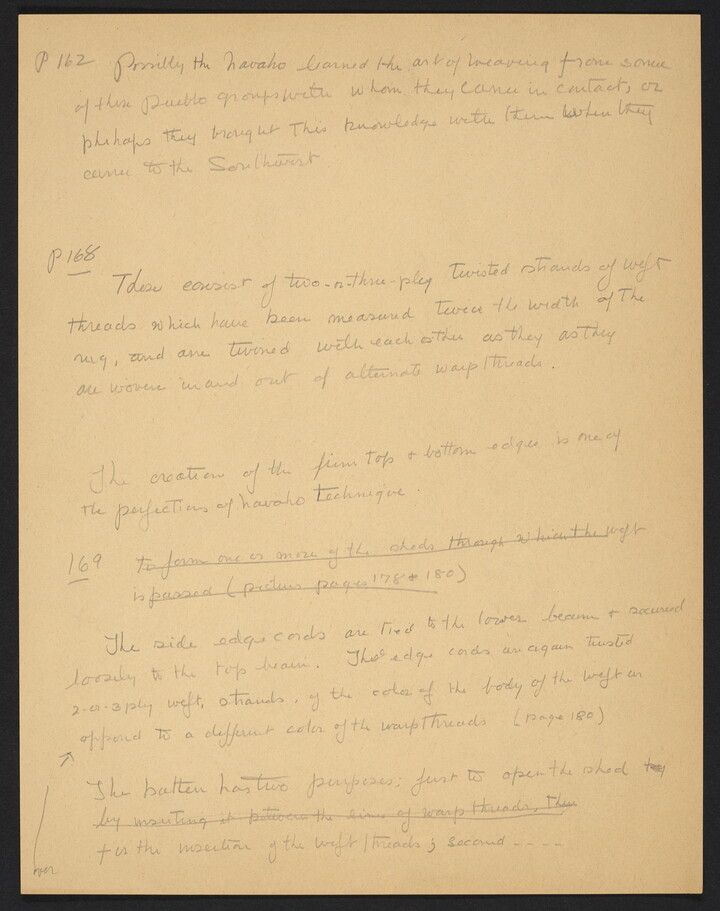 P 162 Possibly the Navaho learned the art of weaving from some
of these Pueblo groups with whom they came in contact, or
phehaps they brought this knowledge with them when they
came to the Southwest
P 168
These consist of two-or-three-ply twisted strands of weft
threads which have been measured twice the width of the
rug, and are twined with each other as they as they
are woven in and out of alternate warp threads.
The creation of the firm top + bottom edges is one of
the perfections of Navaho technique.
169 to form one or more of the sheds through which the weft
is passed (picture pages 178 + 180)
The side edge cords are tied to the lower beam + secured
loosely to the top beam. The edge cords are again twisted
2-or-3 ply weft strands, of the color of the body of the weft as
opposed to a different color of the warp threads (page 180)
The batten has two purposes: first to open the shed
by inserting it between the lines of warp threads, then
for the insertion of the weft threads; second - - - -
over